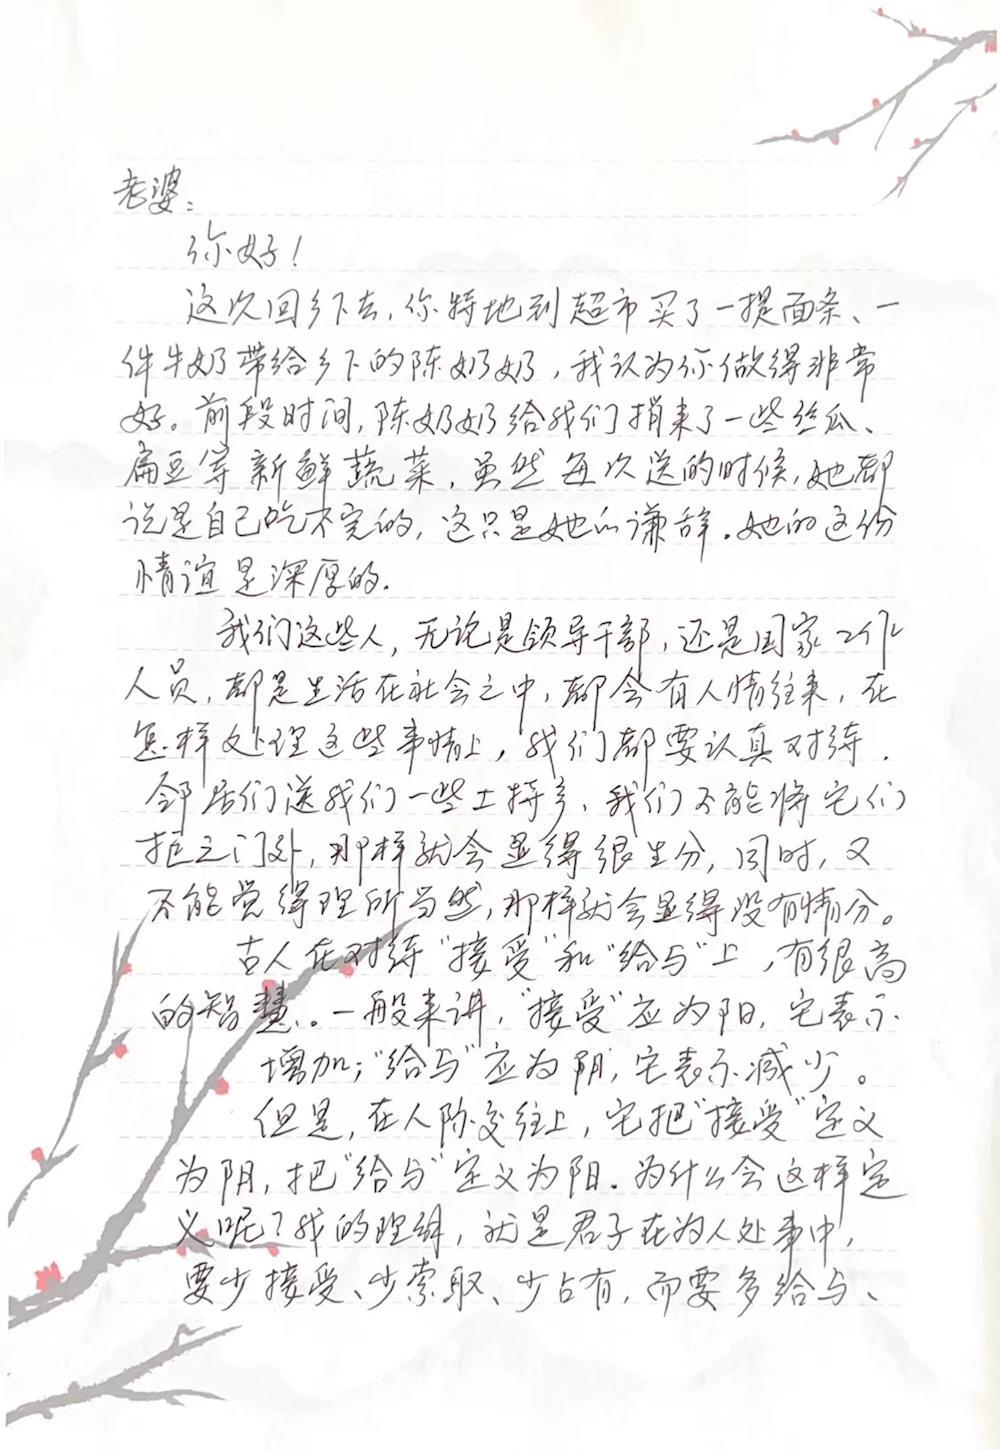 老婆：
你好！
这次回乡下去，你特地到超市买了一提面条、一
件牛奶带给乡下的陈奶奶，我认为你做得非常
好。前段时间，陈奶奶给我们捎来了一些丝瓜、
扁豆等新鲜蔬菜，虽然每次送的时候，她都
说是自己吃不完的，这只是她的谦辞。她的这份
情谊是深厚的。
我们这些人，无论是领导干部，还是国家工作
人员，都是生活在社会之中，都会有人情往来，在
怎样处理这些事情上，我们都要认真对待。
邻居们送我们一些土特产，我们不能将它们
拒之门外，那样就会显得很生分，同时，又
不能觉得理所当然，那样就会显得没有情分。
古人在对待“接受”和“给与”上，有很高
的智慧。一般来讲，“接受”应为阳，它表示
增加；“给与”应为阴，它表示减少。
但是，在人际交往上，它把“接受”定义
为阴，把“给与”定义为阳。为什么会这样定
义呢？我的理解，就是君子在为人处事中，
要少接受、少索取、少占有，而要多给与、